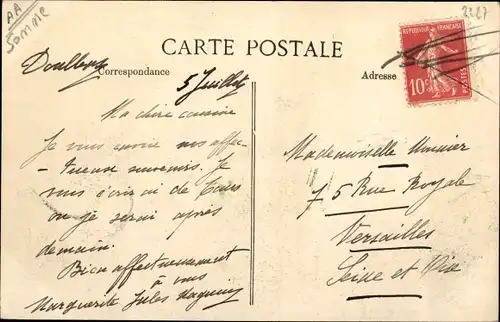 AA
Somme
2227
CARTE POSTALE
Correspondance
Adresse
REPUBLIQUE FRANÇAISE
10c
POSTES
Doullens
5 Juillet
Ma chère cousine
Je vous envoie nos affec-
-tueux souvenirs. Je
vous écrirai de Tours
où je serai après
demain.
Bien affectueusement
à vous
Marguerite Jules
Mademoiselle Meunier
75 Rue Royale
Versailles
Seine et Oise